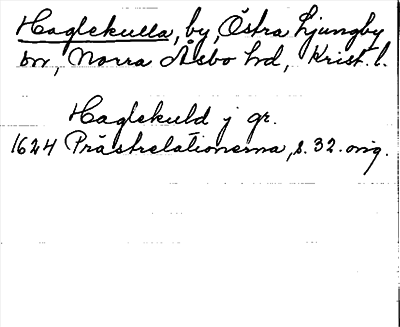 Haglekulla, by, Östra Ljungby
sn, Norra Åsbo hd, Krist. l.
Haglekuld j gr.
1624 Prästrelationerna, s. 32. orig.